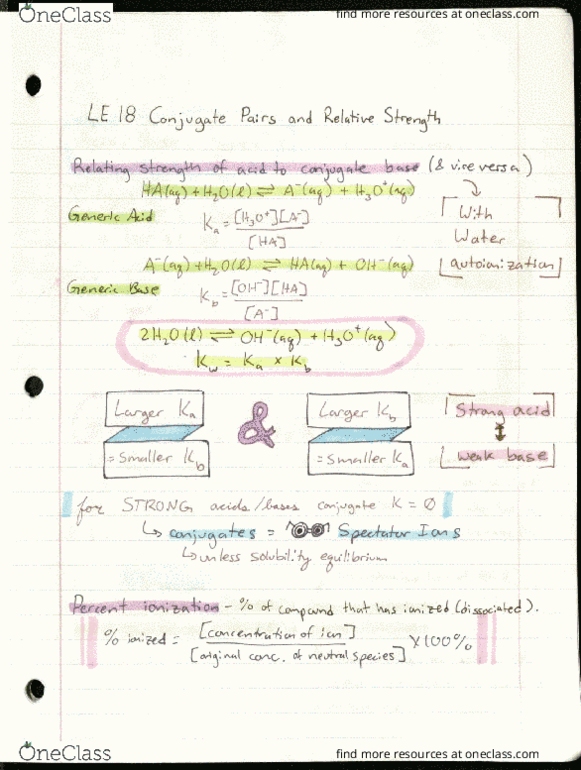 OneClass
find more resources at oneclass.com
LE 18 Conjugate Pairs and Relative Strength
Relating strength of acid to conjugate base (& vice versa)
HA(aq) + H₂O(l) ⇌ A⁻(aq) + H₃O⁺(aq)
Generic Acid
Kₐ = [H₃O⁺][A⁻]
[HA]
With
Water
autoionization
A⁻(aq) + H₂O(l) ⇌ HA(aq) + OH⁻(aq)
Generic Base
K_b = [OH⁻][HA]
[A⁻]
2H₂O(l) ⇌ OH⁻(aq) + H₃O⁺(aq)
K_w = Kₐ × K_b
Larger Kₐ
= Smaller K_b
&
Larger K_b
= Smaller Kₐ
Strong acid
weak base
for STRONG acids/bases conjugate K = 0
↳ conjugates = Spectator Ions
↳ unless solubility equilibrium
Percent ionization - % of compound that has ionized (dissociated).
% ionized = [concentration of ion]
[original conc. of neutral species]
× 100%
OneClass
find more resources at oneclass.com